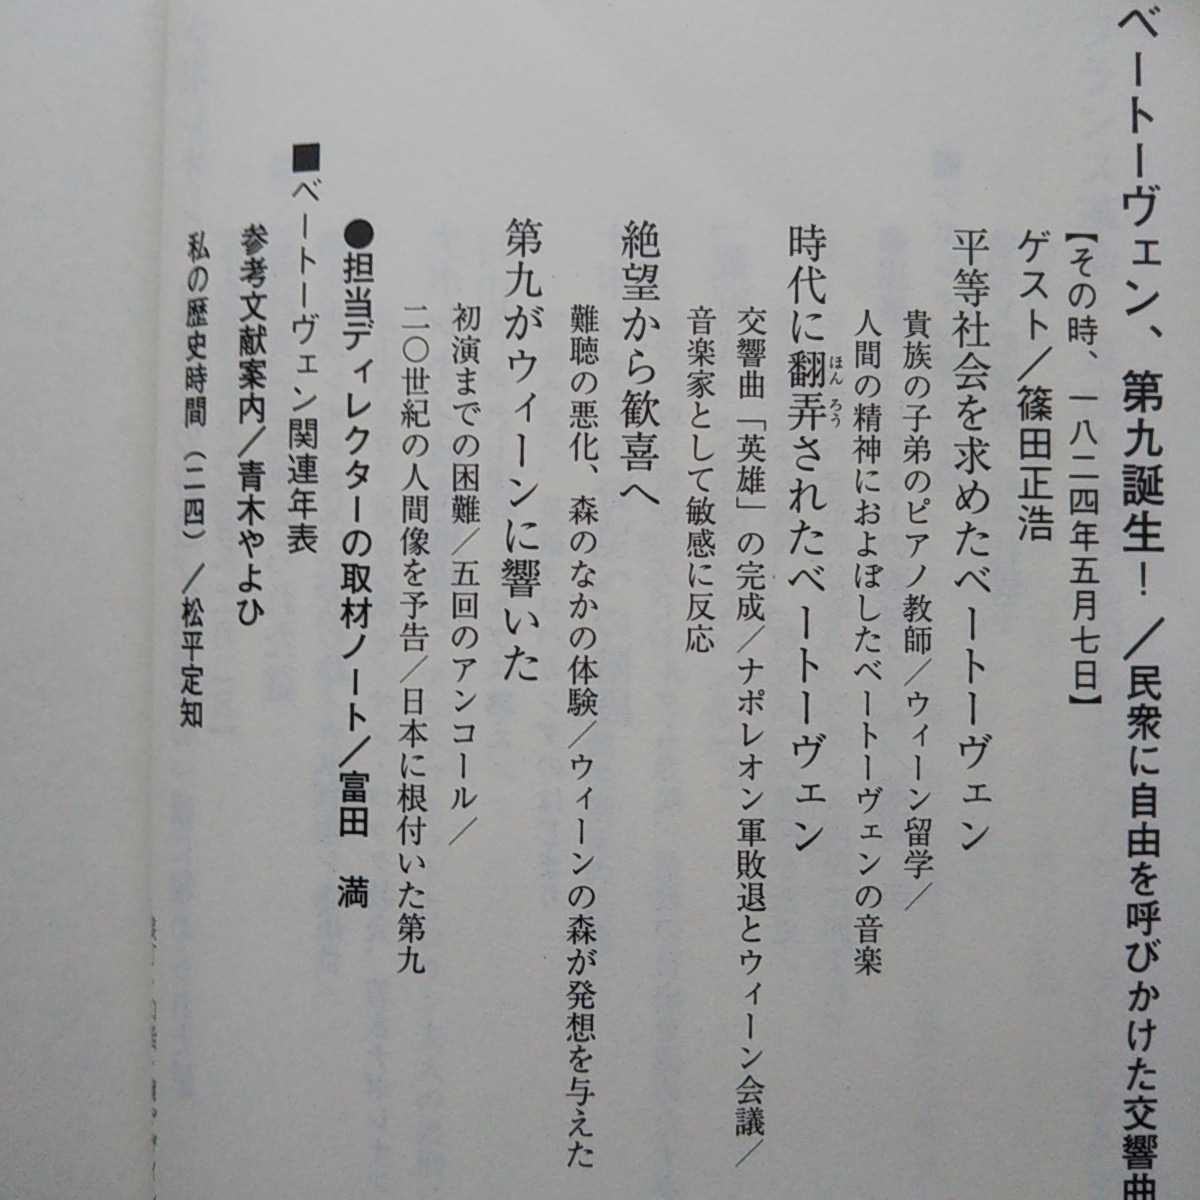 ベートーヴェン、第九誕生！／民衆に自由を呼びかけた交響曲
【その時、一八二四年五月七日】
ゲスト／篠田正浩
平等社会を求めたベートーヴェン
貴族の子弟のピアノ教師／ウィーン留学／
人間の精神におよぼしたベートーヴェンの音楽
時代に翻弄されたベートーヴェン
ほんろう
交響曲「英雄」の完成／ナポレオン軍敗退とウィーン会議／
音楽家として敏感に反応
絶望から歓喜へ
難聴の悪化、森のなかの体験／ウィーンの森が発想を与えた
第九がウィーンに響いた
初演までの困難／五回のアンコール／
二〇世紀の人間像を予告／日本に根付いた第九
●担当ディレクターの取材ノート／富田　満
■ベートーヴェン関連年表
参考文献案内／青木やよひ
私の歴史時間（二四）／松平定知